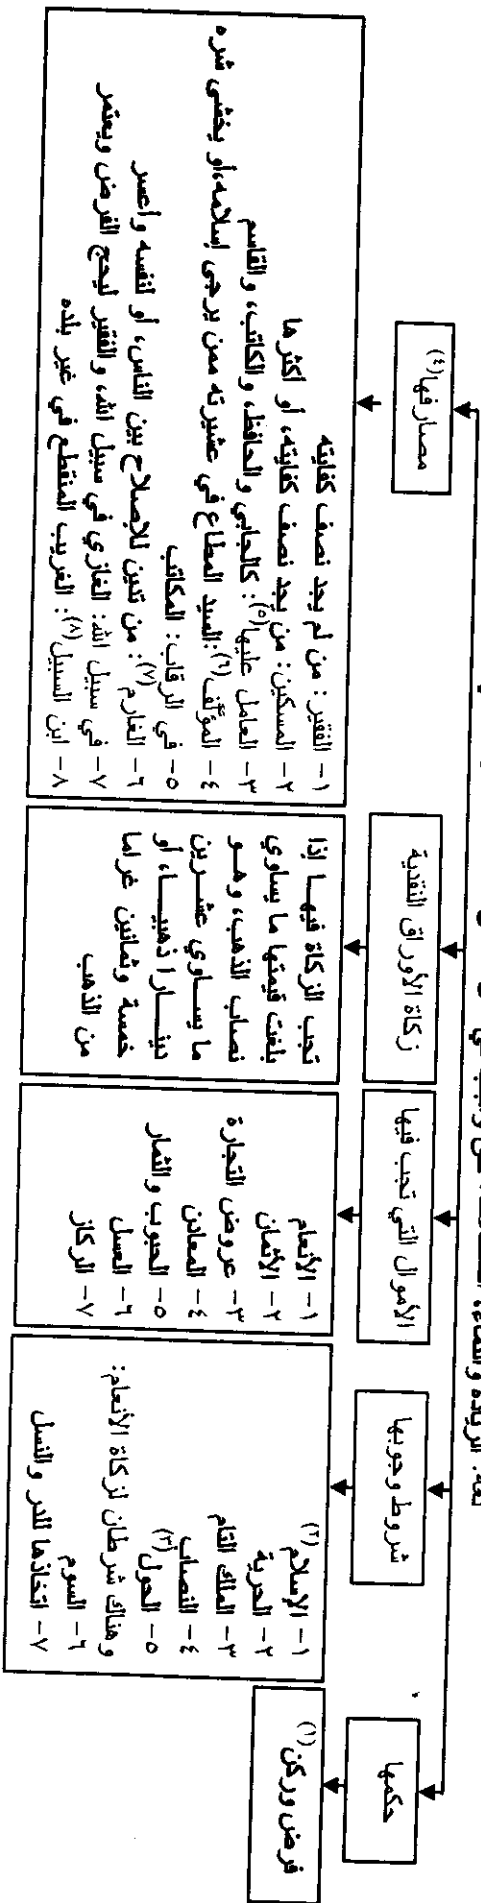 لغة: الزيادة والنماء،
حكمها
فرض وركن(١)
شروط وجوبها
١- الإسلام(٢)
٢- الحرية
٣- الملك التام
٤- النصاب
٥- الحول(٣)
وهناك شرطان لزكاة الأنعام:
٦- السوم
٧- اتخاذها للدر والنسل
الأموال التي تجب فيها
١- الأنعام
٢- الأثمان
٣- عروض التجارة
٤- المعادن
٥- الحبوب والثمار
٦- العسل
٧- الركاز
زكاة الأوراق النقدية
تجب الزكاة فيها إذا
بلغت قيمتها ما يساوي
نصاب الذهب، وهو
ما يساوي عشرين
دينارا ذهبيا، أو
خمسة وثمانين غراما
من الذهب
مصارفها(٤)
١- الفقير: من لم يجد نصف كفايته
٢- المسكين: من يجد نصف كفايته، أو أكثرها
٣- العامل عليها(٥): كالجابي والحافظ، والكاتب، والقاسم
٤- المؤلف(٦): السيد المطاع في عشيرته ممن يرجى إسلامه، أو يخشى شره
٥- في الرقاب: المكاتب
٦- الغارم(٧): من تدين للإصلاح بين الناس، أو لنفسه وأعسر
٧- في سبيل الله: الغازي في سبيل الله، والفقير ليحج الفرض ويعتمر
٨- ابن السبيل(٨): الغريب المنقطع في غير بلده